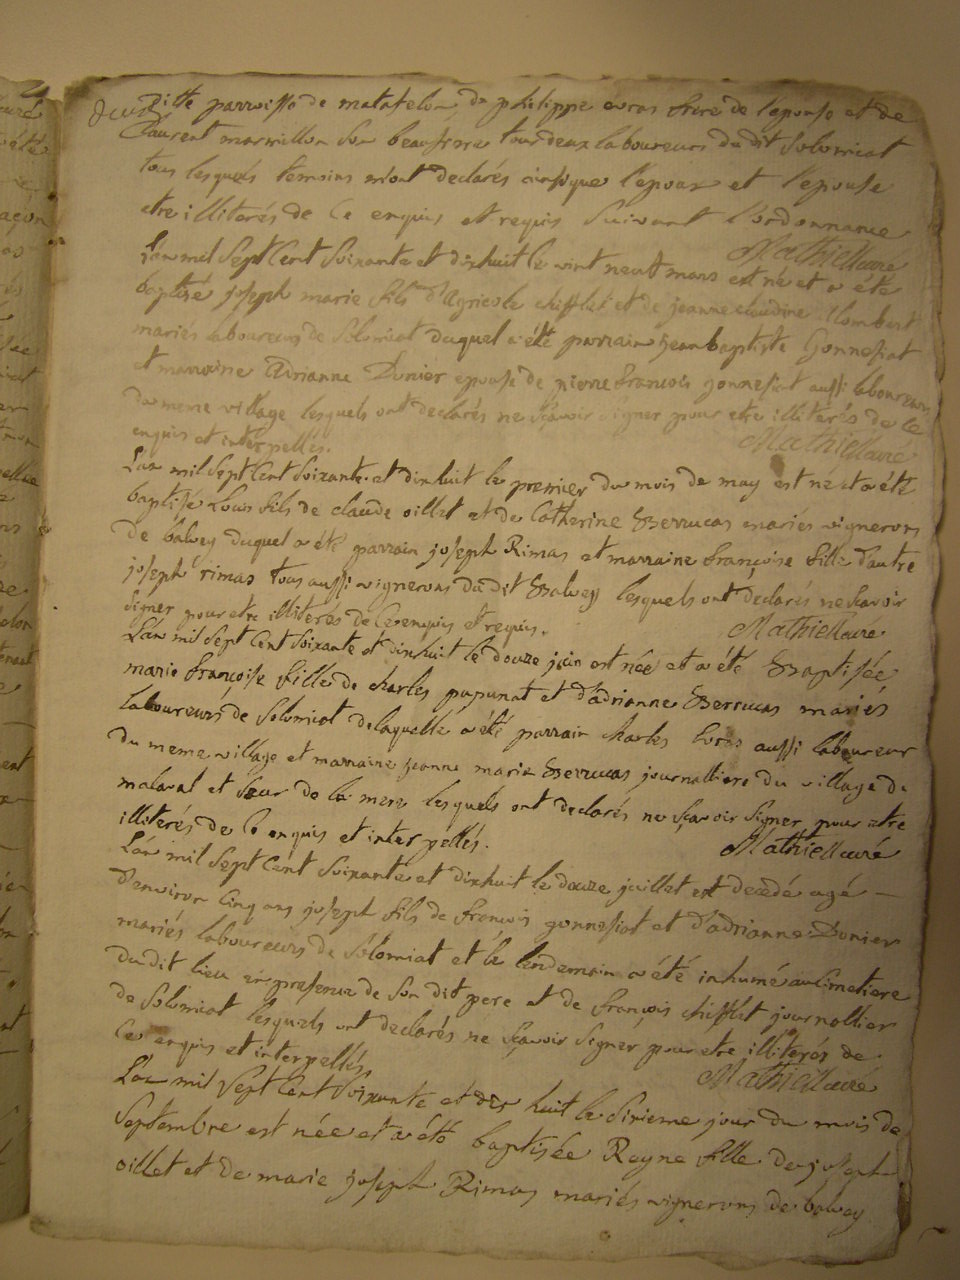 ditte parroisse de matafelon du philippe évras frere de l'epouse et de
Laurent marmillon son beaufrere tous deux laboureurs du dit Solomiat
tous lesquels temoins m'ont declarés ainsi que l'epoux et l'epouse
etre illiterés de ce enquis et requis suivant l'ordonnance
Mathieu curé
L'an mil sept cent soixante et dixhuit le vint neuf mars est né et a été
baptisé joseph marie fils d'Agricole chifflet et de jeanne claudine
mariés laboureurs de Solomiat duquel a été parrain jean baptiste Gonnessiat
et marraine Adrianne Dunier epouse de pierre francois gonnessiat aussi laboureurs
du meme village lesquels ont declarés ne scavoir signer pour etre illiterés de ce
enquis et interpellés. Mathieu curé
L'an mil sept cent soixante et dixhuit le premier du mois de may est né et a été
baptisé Louis fils de claude oillet et de Catherine Berrucas mariés vignerons
de balvay duquel a été parrain joseph Rimas et marraine françoise fille d'autre
joseph rimas tous aussi vignerons du dit Balvay lesquels ont declarés ne scavoir
signer pour etre illiteres de ce enquis et requis. Mathieu curé
L'an mil sept cent soixante et dixhuit le douze juin est née et a été Baptisée
marie françoise fille de charles papunat et d'adrianne Berrucas mariés
Laboureurs de Solomiat delaquelle a été parrain charles aussi laboureur
du meme village et marraine jeanne marie Berrucas journalliere du village de
malaval et sœur de la mere lesquels ont declarés ne sçavoir signer pour etre
illiterés de ce enquis et interpellés. Mathieu curé
L'an mil sept cent soixante et dixhuit le douze juillet est decedé agé
d'environ cinq ans joseph fils de françois gonnessiat et d'adrianne Dunier
mariés laboureurs de Solomiat et le lendemain a été inhumé au cimetiere
du dit lieu en presence de son dit pere et de françois chifflet journallier
de Solomiat lesquels ont declarés ne sçavoir signer pour etre illiterés de
ce enquis et interpellés. Mathieu curé
L'an mil sept cent soixante et dix huit le sixieme jour du mois de
Septembre est née et a été baptisée Reyne fille de joseph
oillet et de marie joseph Rimas mariés vignerons de balvay